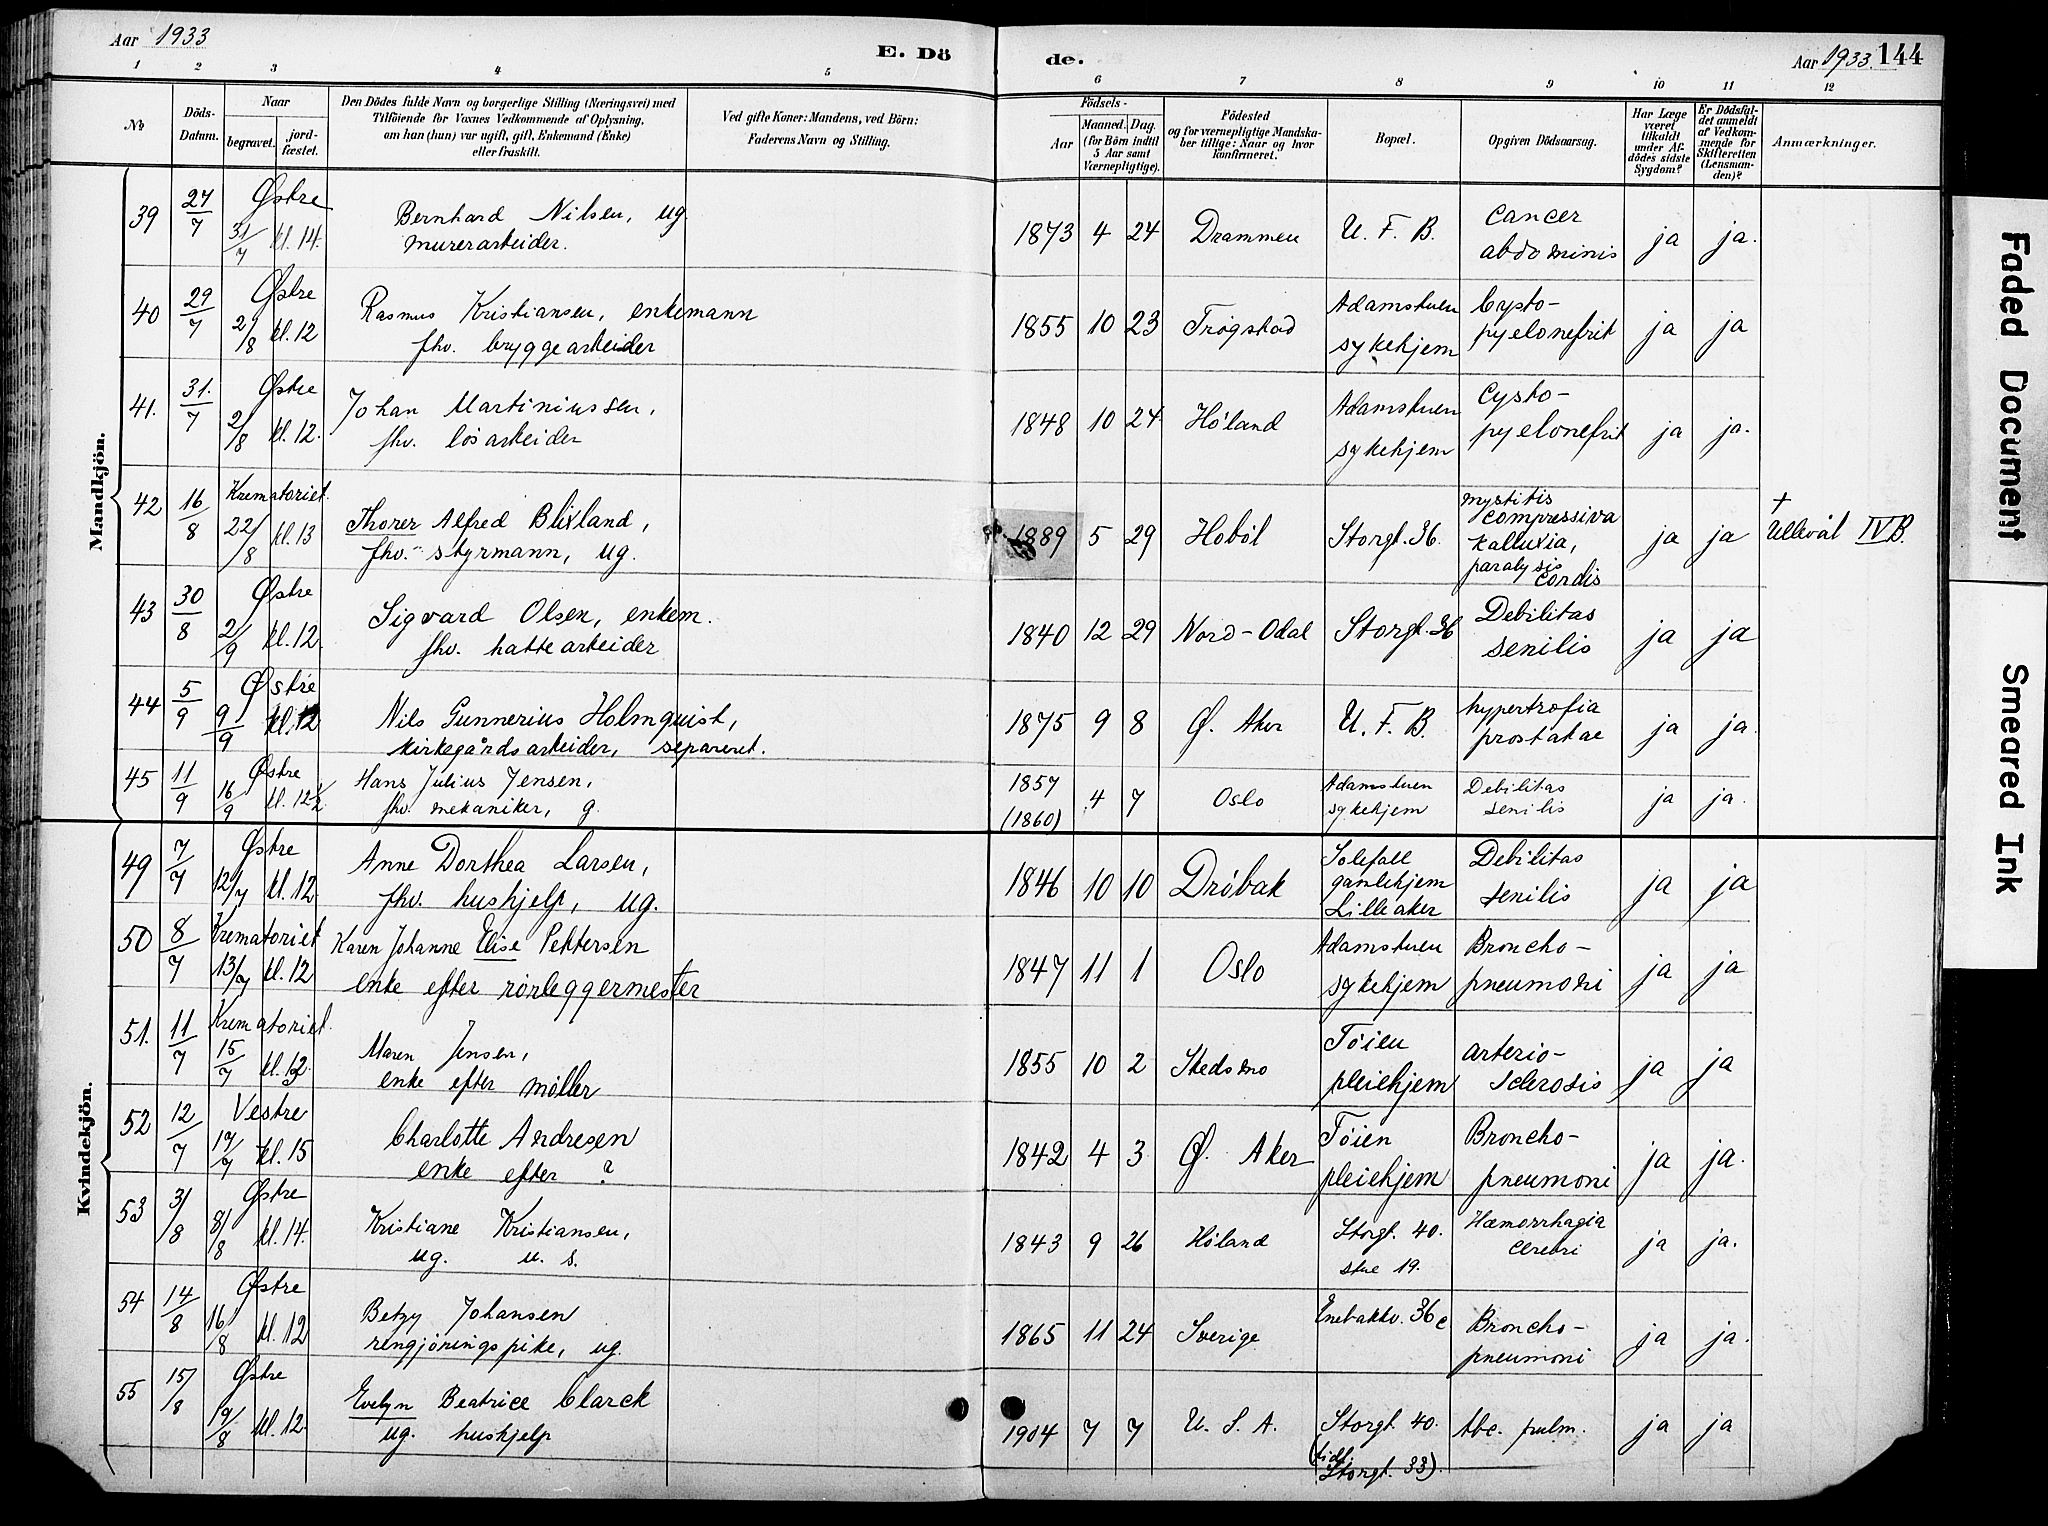 Aar 1933
E. Dö
de.
Aar 1933. 144
1 2 3 4 5 6 7 8 9 10 11 12
№
Döds-
Datum.
Naar
begravet.
jord-
fæstet.
Den Dödes fulde Navn og borgerlige Stilling (Næringsvei) med
Tilföiende for Voxnes Vedkommende af Oplysning,
om han (hun) var ugift, gift, Enkemand (Enke)
eller fraskilt.
Ved gifte Koner: Mandens, ved Börn:
Faderens Navn og Stilling.
Födsels-
Aar
Maaned.
Dag.
(for Börn indtil
5 Aar samt
Værnepligtige).
Födested
og for værnepligtige Mandska-
ber tillige: Naar og hvor
konfirmeret.
Bopæl.
Opgiven Dödsaarsag.
Har Læge
været
tilkaldt
under Af-
dödes sidste
Sygdom?
Er Dödsfal-
det anmeldt
af Vedkom-
mende for
Skifteretten
(Lensman-
den)?
Anmærkninger.
Mandkjön.
39 27/7 Østre 31/7 kl. 14. Bernhard Nilsen, ug.
murerarbeider.
1873 4 24 Drammen U. F. B. Cancer
abdominis ja ja.
40 29/7 Østre 2/8 kl. 12 Rasmus Kristiansen, enkemann
fhv. bryggearbeider
1855 10 23 Trøgstad Adamstuen
sykehjem Cysto-
pyelonefrit ja ja
41. 31./7 Østre 2/8 kl. 12. Johan Martiniussen,
fhv. løsarbeider
1848 10 24 Høland Adamstuen
sykehjem Cysto-
pyelonefrit ja ja.
42 16/8 Krematoriet. 22/8 kl. 13 Thorer Alfred Blixland,
fhv. styrmann, ug.
1889 5 29 Hobøl Storgt. 36.
compressiva
paralysis
cordis ja ja
+
Ullevål IV B.
43 30/8 Østre 2/9 kl. 12. Sigvard Olsen, enkem.
fhv. hattearbeider
1840 12 29 Nord-Odal Storgt. 36 Debilitas
senilis ja ja
44 5/9 Østre 9/9 kl. 12 Nils Gunnerius Holmquist,
kirkegårdsarbeider, separeret.
1875 9 8 Ø. Aker U. F. B. hypertrofia
prostatae ja ja.
45 11/9 Østre 16/9 kl. 12½ Hans Julius Jensen,
fhv. mekaniker, g.
1857
(1860) 4 7 Oslo Adamstuen
sykehjem Debilitas
senilis ja ja.
Kvindekjön.
49 7/7 Østre 12/7 kl. 12 Anne Dorthea Larsen,
fhv. hushjelp, ug.
1846 10 10 Drøbak Solefall
gamlehjem
Lilleaker Debilitas
senilis ja ja
50 8/7 Krematoriet 13/7 kl. 12 Karen Johanne Elise Pettersen
enke efter rørleggermester
1847 11 1 Oslo Adamstuen
sykehjem Broncho-
pneumoni ja ja
51. 11/7 Krematoriet. 15/7 Maren Jensen,
enke efter møller
1855 10 2 Skedsmo Tøien
pleiehjem arterio-
sclerosis ja ja
52 12/7 Vestre 17/7 kl. 15 Charlotte Andresen
enke efter ?
1842 4 3 Ø. Aker Tøien
pleiehjem Broncho-
pneumoni ja ja.
53 3/8 Østre 8/8 kl. 14. Kristiane Kristiansen,
ug. u. s.
1843 9 26 Høland Storgt. 40.
stue 19. Hæmorrhagia
cerebri ja ja.
54 14/8 Østre 16/8 kl. 12 Betzy Johansen
rengjøringspike, ug.
1865 11 24 Sverige Enebakkv. 36 c Broncho-
pneumoni ja ja.
55 15/8 Østre 19/8 kl. 12. Evelyn Beatrice Clarck
ug. hushjelp
1904 7 7 U. S. A. Storgt. 40.
(tidl.
Storgt. 33). tbc. pulm. ja ja
Faded Document
Smeared Ink